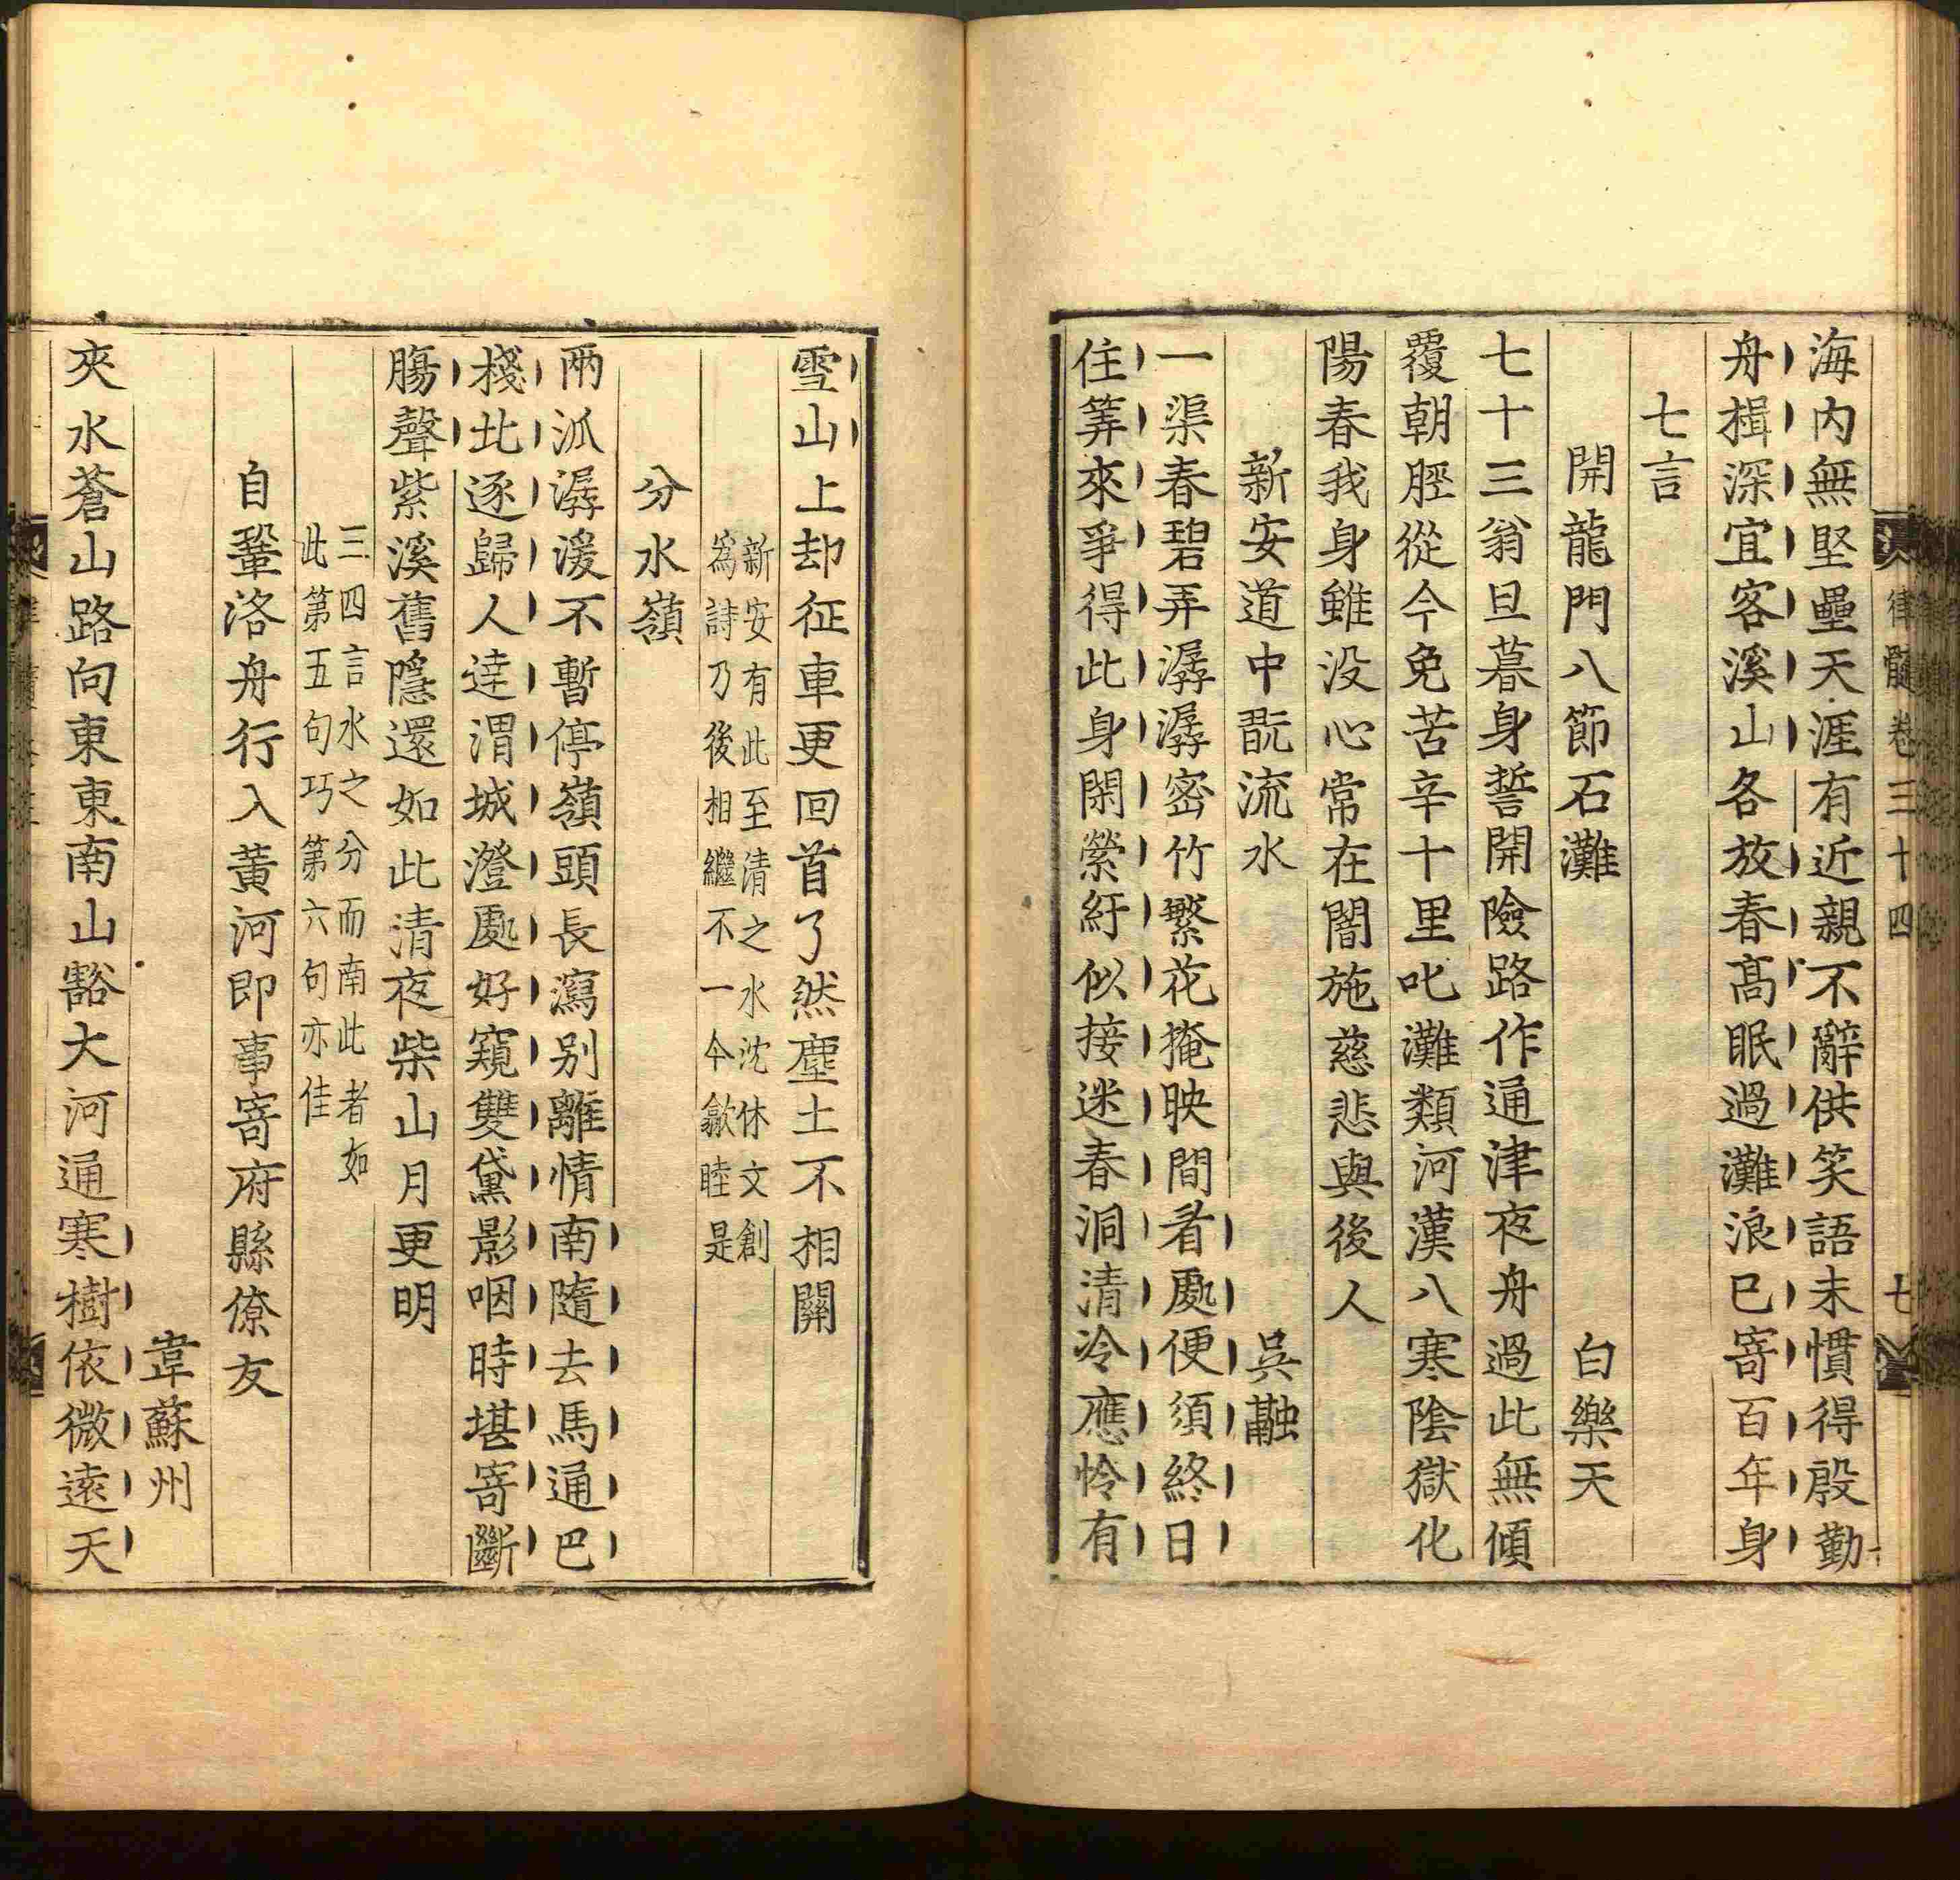 律髓卷三十四 七
海內無堅壘天涯有近親不辭供笑語未慣得殷勤
舟楫深宜客溪山各放春高眠過灘浪已寄百年身
七言
開龍門八節石灘 白樂天
七十三翁旦暮身誓開險路作通津夜舟過此無傾
覆朝脛從今免苦辛十里叱灘類河漢八寒陰獄化
陽春我身雖没心常在闇施慈悲與後人
新安道中翫流水 吳融
一渠春碧弄潺潺密竹繁花掩映間看處便須終日
住筭來爭得此身閑縈紆似接迷春洞清冷應怜有
雪山上却征車更回首了然塵土不相關
新安有此至清之水沈休文創
爲詩乃後相繼不一今歙睦是
分水嶺
兩派潺湲不暫停嶺頭長瀉別離情南隨去馬通巴
棧北逐歸人達渭城澄處好窺雙黛影咽時堪寄斷
腸聲紫溪舊隱還如此清夜柴山月更明
三四言水之分而南此者如
此第五句巧第六句亦佳
自鞏洛舟行入黃河即事寄府縣僚友
韋蘇州
夾水蒼山路向東東南山豁大河通寒樹依微遠天